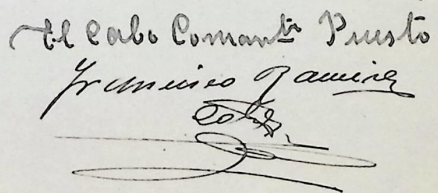 El Cabo Comante Puesto
Francisco Ramirez